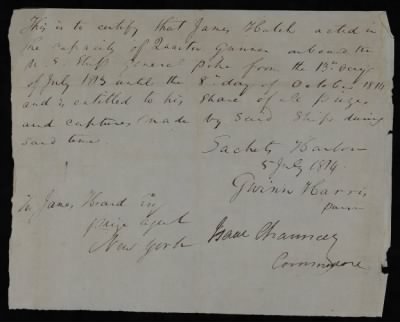 This is to certify that James Hatch acted in
the capacity of Quarter Gunner onboard the
U. S. Ship General Pike from the 13th day
of July 1813 until the 8th day of October 1814
and is entitled to his share of all prizes
and captures made by said Ship during
said time.
Sackets Harbor
5 July 1814.
Gwinn Harris
purser
To James Heard Esq
prize agent
New York
Isaac Chauncey
Commodore